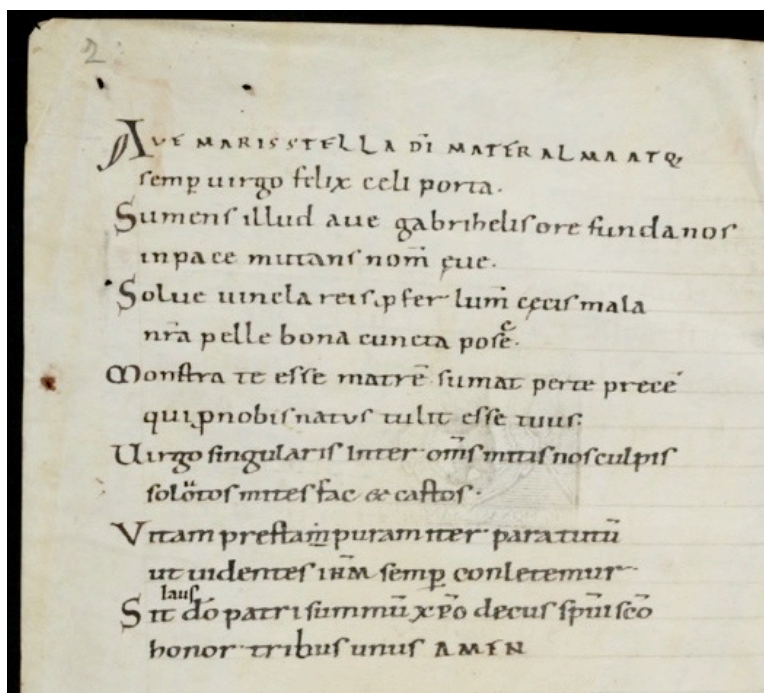 2
AVE MARIS STELLA DĪ MATER ALMA ATQ;
semꝑ uirgo felix celi porta.
Sumens illud aue gabrihelis ore funda nos
in pace mutans nom̄ ęue.
Solue uincla reis ꝓfer lum̄ cęcis mala
nr̄a pelle bona cuncta posce.
Monstra te esse matrē sumat per te precē
qui ꝓ nobis natus tulit esse tuus.
Uirgo singularis Inter om̄s mitis nos culpis
solutos mites fac & castos.
Vitam presta puram iter para tutū
ut uidentes IHM̄ semꝑ conletemur
laus
Sit dō patri summū xp̄o decus sp̄ui sc̄o
honor tribus unus AMEN